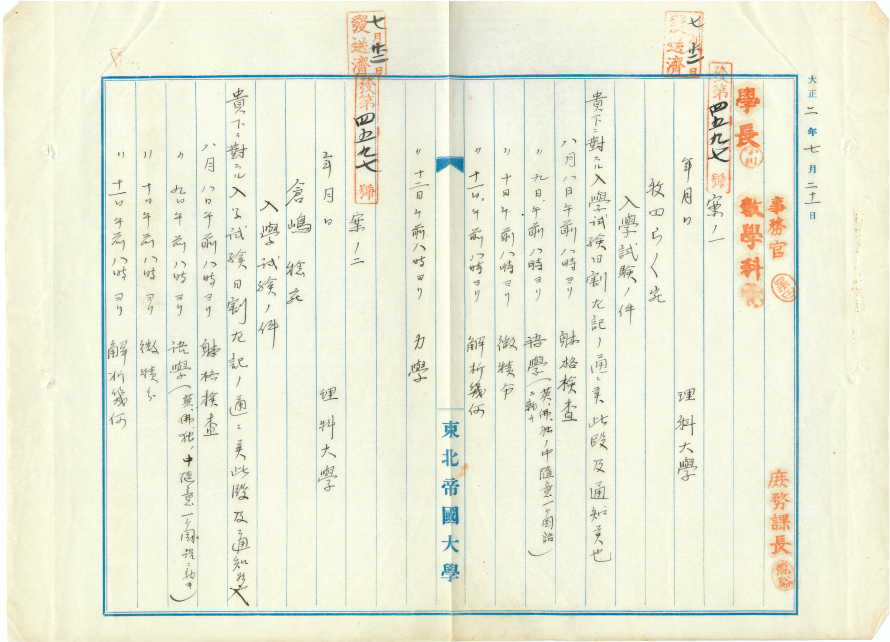 大正二年七月二十一日
事務官
庶務課長
學長
數學科
七月廿二日
發送濟
發第四五九七號
案ノ一
年月日
理科大學
牧田らく宛
入學試驗ノ件
貴下ニ對スル入學試驗日割左記ノ通ニ候此段及通知候也
八月八日午前八時ヨリ 躰格檢査
〃九日午前八時ヨリ 語學(英、佛、独ノ中隨意一ヶ國語ニ就キ)
〃十日午前八時ヨリ 微積分
〃十一日午前八時ヨリ 解析幾何
〃十二日午前八時ヨリ 力學
東北帝國大學
七月廿二日
發送濟
發第四五九七號
案ノ二
年月日
理科大學
入學試驗ノ件
貴下ニ對スル入學試驗日割左記ノ通ニ候此段及通知候也
八月八日午前八時ヨリ 躰格檢査
〃九日午前八時ヨリ 語學(英、佛、独ノ中隨意一ヶ國語ニ就キ)
〃十日午前八時ヨリ 微積分
〃十一日午前八時ヨリ 解析幾何